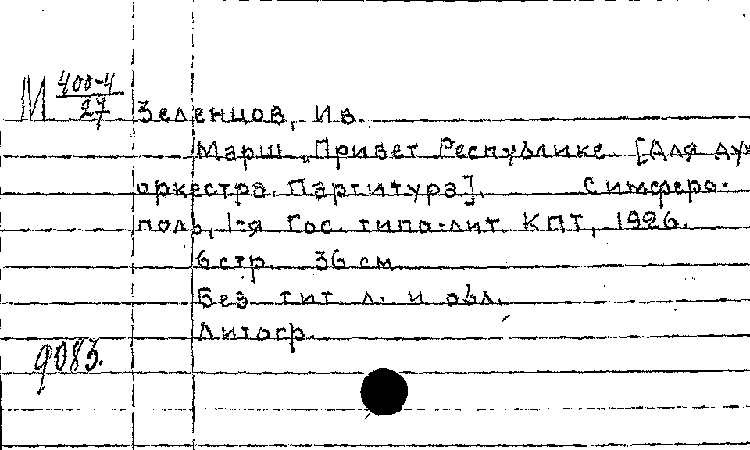 М 400-4/27
Зеленцов, Ив.
Марш „Привет Республике. [Для дух
оркестра. Партитура]. Симферо-
поль, 1-я Гос. типо-лит. КПТ, 1926.
6 стр. 36 см
Без тит л. и обл.
Литогр.
9083.